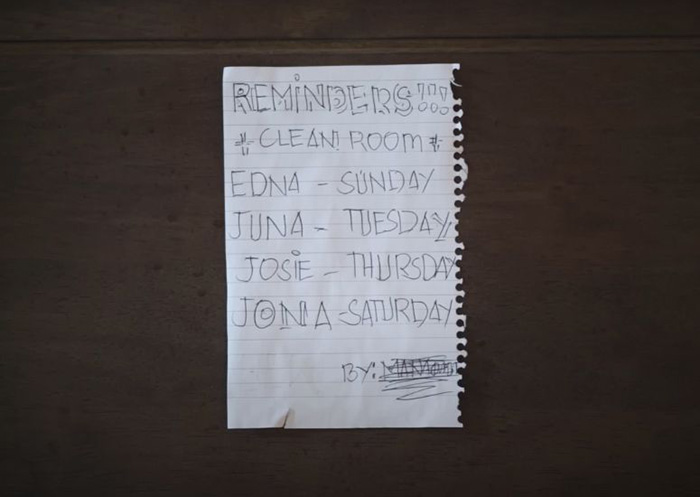 REMINDERS!!!
# CLEAN! ROOM #
EDNA - SUNDAY
JUNA - TUESDAY
JOSIE - THURSDAY
JONA - SATURDAY
BY: